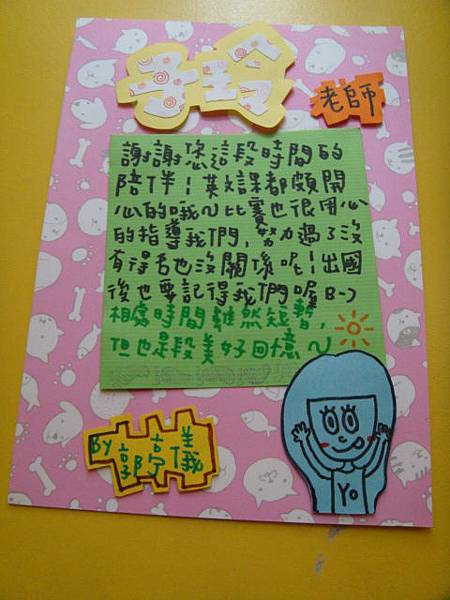 子玲
老師
謝謝您這段時間的
陪伴!英文課都頗開
心的哦~比賽也很用心
的指導我們,努力過了沒
有得名也沒關係呢!出國
後也要記得我們喔B-)
相處時間雖然短暫,
但也是段美好回憶~
BY 郭亭儀
Yo